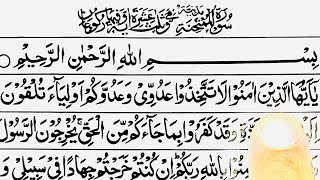 سُوْرَةُ الْمُمْتَحِنَةِ مَدَنِيَّةٌ
بِسْمِ اللهِ الرَّحْمٰنِ الرَّحِيْمِ
يٰٓاَيُّهَا الَّذِيْنَ اٰمَنُوْا لَا تَتَّخِذُوْا عَدُوِّيْ وَعَدُوَّكُمْ اَوْلِيَآءَ تُلْقُوْنَ
وَقَدْ كَفَرُوْا بِمَا جَآءَكُمْ مِّنَ الْحَقِّ يُخْرِجُوْنَ الرَّسُوْلَ
بِاللهِ رَبِّكُمْ اِنْ كُنْتُمْ خَرَجْتُمْ جِهَادًا فِيْ سَبِيْلِيْ وَا